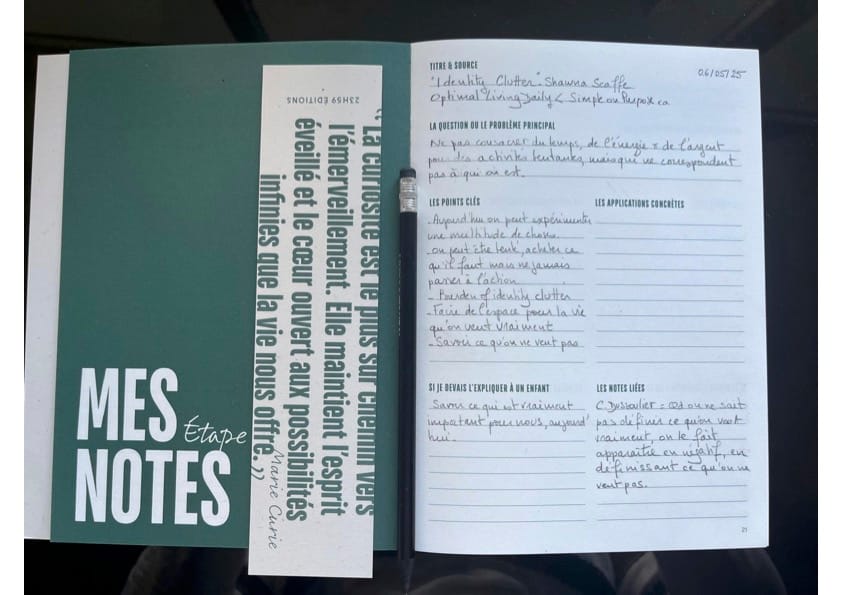 MES
Étape
NOTES
23H59 ÉDITIONS
“La curiosité est le plus sûr chemin vers
l'émerveillement. Elle maintient l'esprit
éveillé et le cœur ouvert aux possibilités
infinies que la vie nous offre.”
Marie Curie
TITRE & SOURCE
06/05/25
"Identity Clutter". Shawna Scaffe
Optimal Living Daily < Simple on Purpose.ca
LA QUESTION OU LE PROBLÈME PRINCIPAL
Ne pas consacrer du temps, de l'énergie & de l'argent
pour des activités tentantes, mais qui ne correspondent
pas à qui on est.
LES POINTS CLÉS
- Aujourd'hui on peut expérimenter
une multitude de choses
- on peut être tenté, acheter ce
qu'il faut mais ne jamais
passer à l'action
- Burden of identity clutter
- Faire de l'espace pour la vie
qu'on veut vraiment
- Savoir ce qu'on ne veut pas
LES APPLICATIONS CONCRÈTES
SI JE DEVAIS L'EXPLIQUER À UN ENFANT
Savoir ce qui est vraiment
important pour nous, aujourd'
hui.
LES NOTES LIÉES
C. Dusoulier = Qd on ne sait
pas définir ce qu'on veut
vraiment, on le fait
apparaître en négatif, en
définissant ce qu'on ne
veut pas.
21